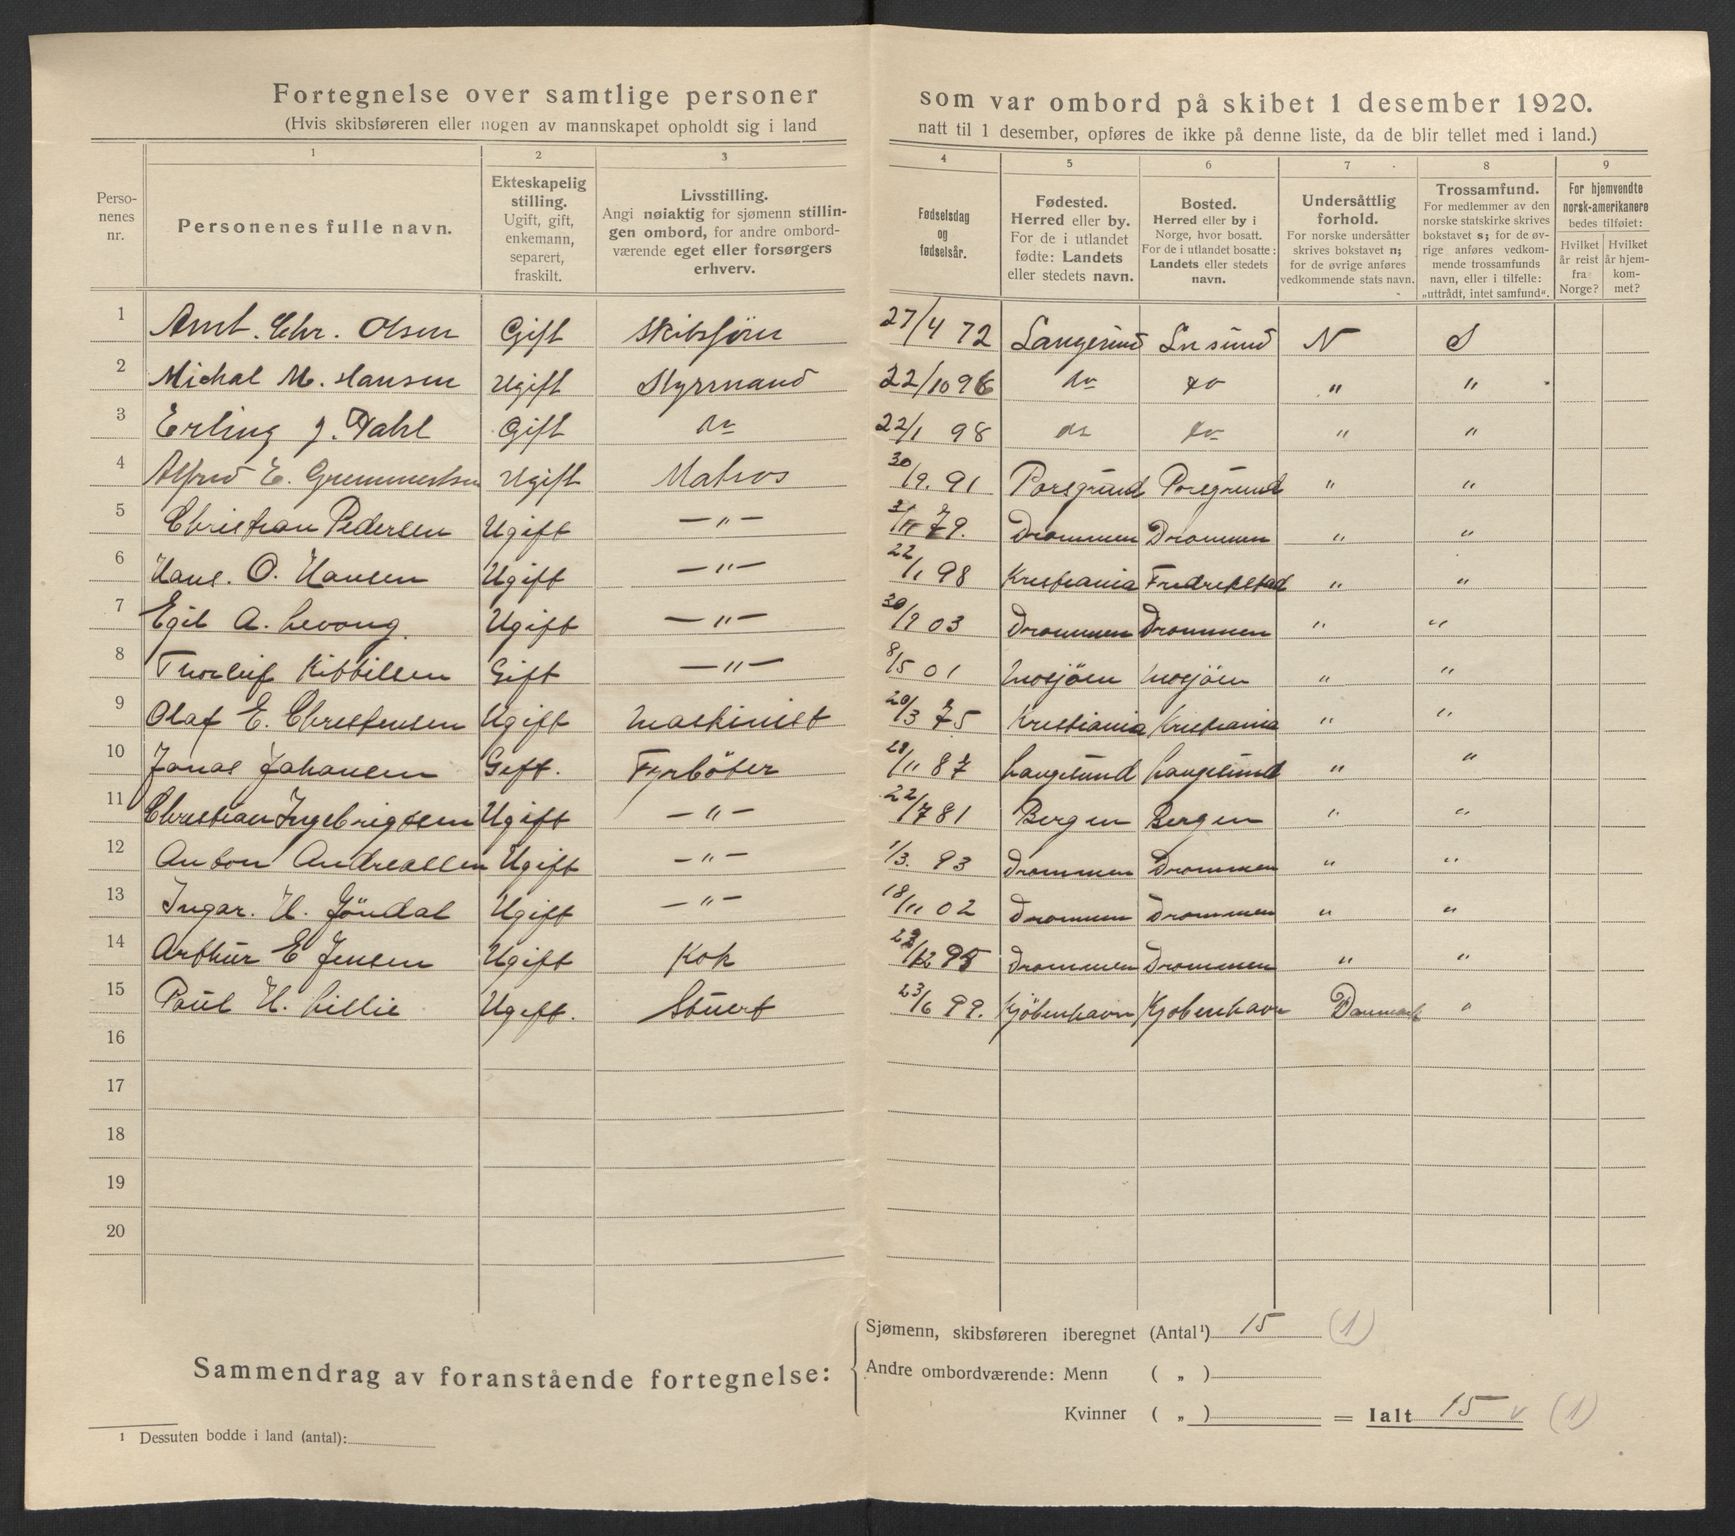 Fortegnelse over samtlige personer som var ombord på skibet 1 desember 1920.
(Hvis skibsføreren eller nogen av mannskapet opholdt sig i land natt til 1 desember, opføres de ikke på denne liste, da de blir tellet med i land.)
Perso-
nenes
nr.
1
Personenes fulle navn.
2
Ekteskapelig
stilling.
Ugift, gift,
enkemann,
separert,
fraskilt.
3
Livsstilling.
Angi nøiaktig for sjømenn stillin-
gen ombord, for andre ombord-
værende eget eller forsørgers
erhverv.
4
Fødselsdag
og
fødselsår.
5
Fødested.
Herred eller by.
For de i utlandet
fødte: Landets
eller stedets navn.
6
Bosted.
Herred eller by i
Norge, hvor bosatt.
For de i utlandet bosatte:
Landets eller stedets
navn.
7
Undersåttlig
forhold.
For norske undersåtter
skrives bokstavet n;
for de øvrige anføres
vedkommende stats navn.
8
Trossamfund.
For medlemmer av den
norske statskirke skrives
bokstavet s; for de øv-
rige anføres vedkom-
mende trossamfunds
navn, eller i tilfelle:
„uttrådt, intet samfund“.
9
For hjemvendte
norsk-amerikanere
bedes tilføiet:
Hvilket
år reist
fra
Norge?
Hvilket
år hjem-
kom-
met?
1 Arnt. Chr. Olsen Gift Skibsförer 27/4 72 Langesund N S
2 Michal M. Hansen Ugift Styrmand 22/10 96 do do " "
3 Erling J. Dahl Gift do 22/1 98 do do " "
4 Alfred E. Ugift Matros 30/9. 91 Porsgrund Porsgrund " "
5 Christian Pedersen Ugift —"— 79. Drammen Drammen " "
6 Hans. O. Hansen Ugift —"— 22/1 98 Kristiania Fredrikstad " "
7 Egil A. Levong. Ugift —"— 30/9 03 Drammen Drammen " "
8 Thorleif Kittilsen Gift —"— 8/5 01 Mosjöen Mosjöen " "
9 Olaf E. Christensen Ugift Maskinist 20/3 75 Kristiania Kristiania " "
10 Jonas Johansen Gift. Fyrböter 28/11 87 Langesund Langesund " "
11 Christian Ingebrigtsen Ugift —"— 22/7 81 Bergen Bergen " "
12 Anton Andreassen Ugift —"— 1/3. 93 Drammen Drammen " "
13 Ingar. H. Jöndal Ugift —"— 18/11 02 Drammen Drammen " "
14 Arthur E Jensen Ugift Kok /12 95 Drammen Drammen " "
15 Paul H. Lillie Ugift. Stuert 23/6 99. Kjöbenhavn Kjöbenhavn Danmark "
16
17
18
19
20
Sammendrag av foranstående fortegnelse:
Sjømenn, skibsføreren iberegnet (Antal¹) 15 (1)
Andre ombordværende: Menn ( „ )
Kvinner ( „ ) = Ialt 15 v (1)
¹ Dessuten bodde i land (antal):